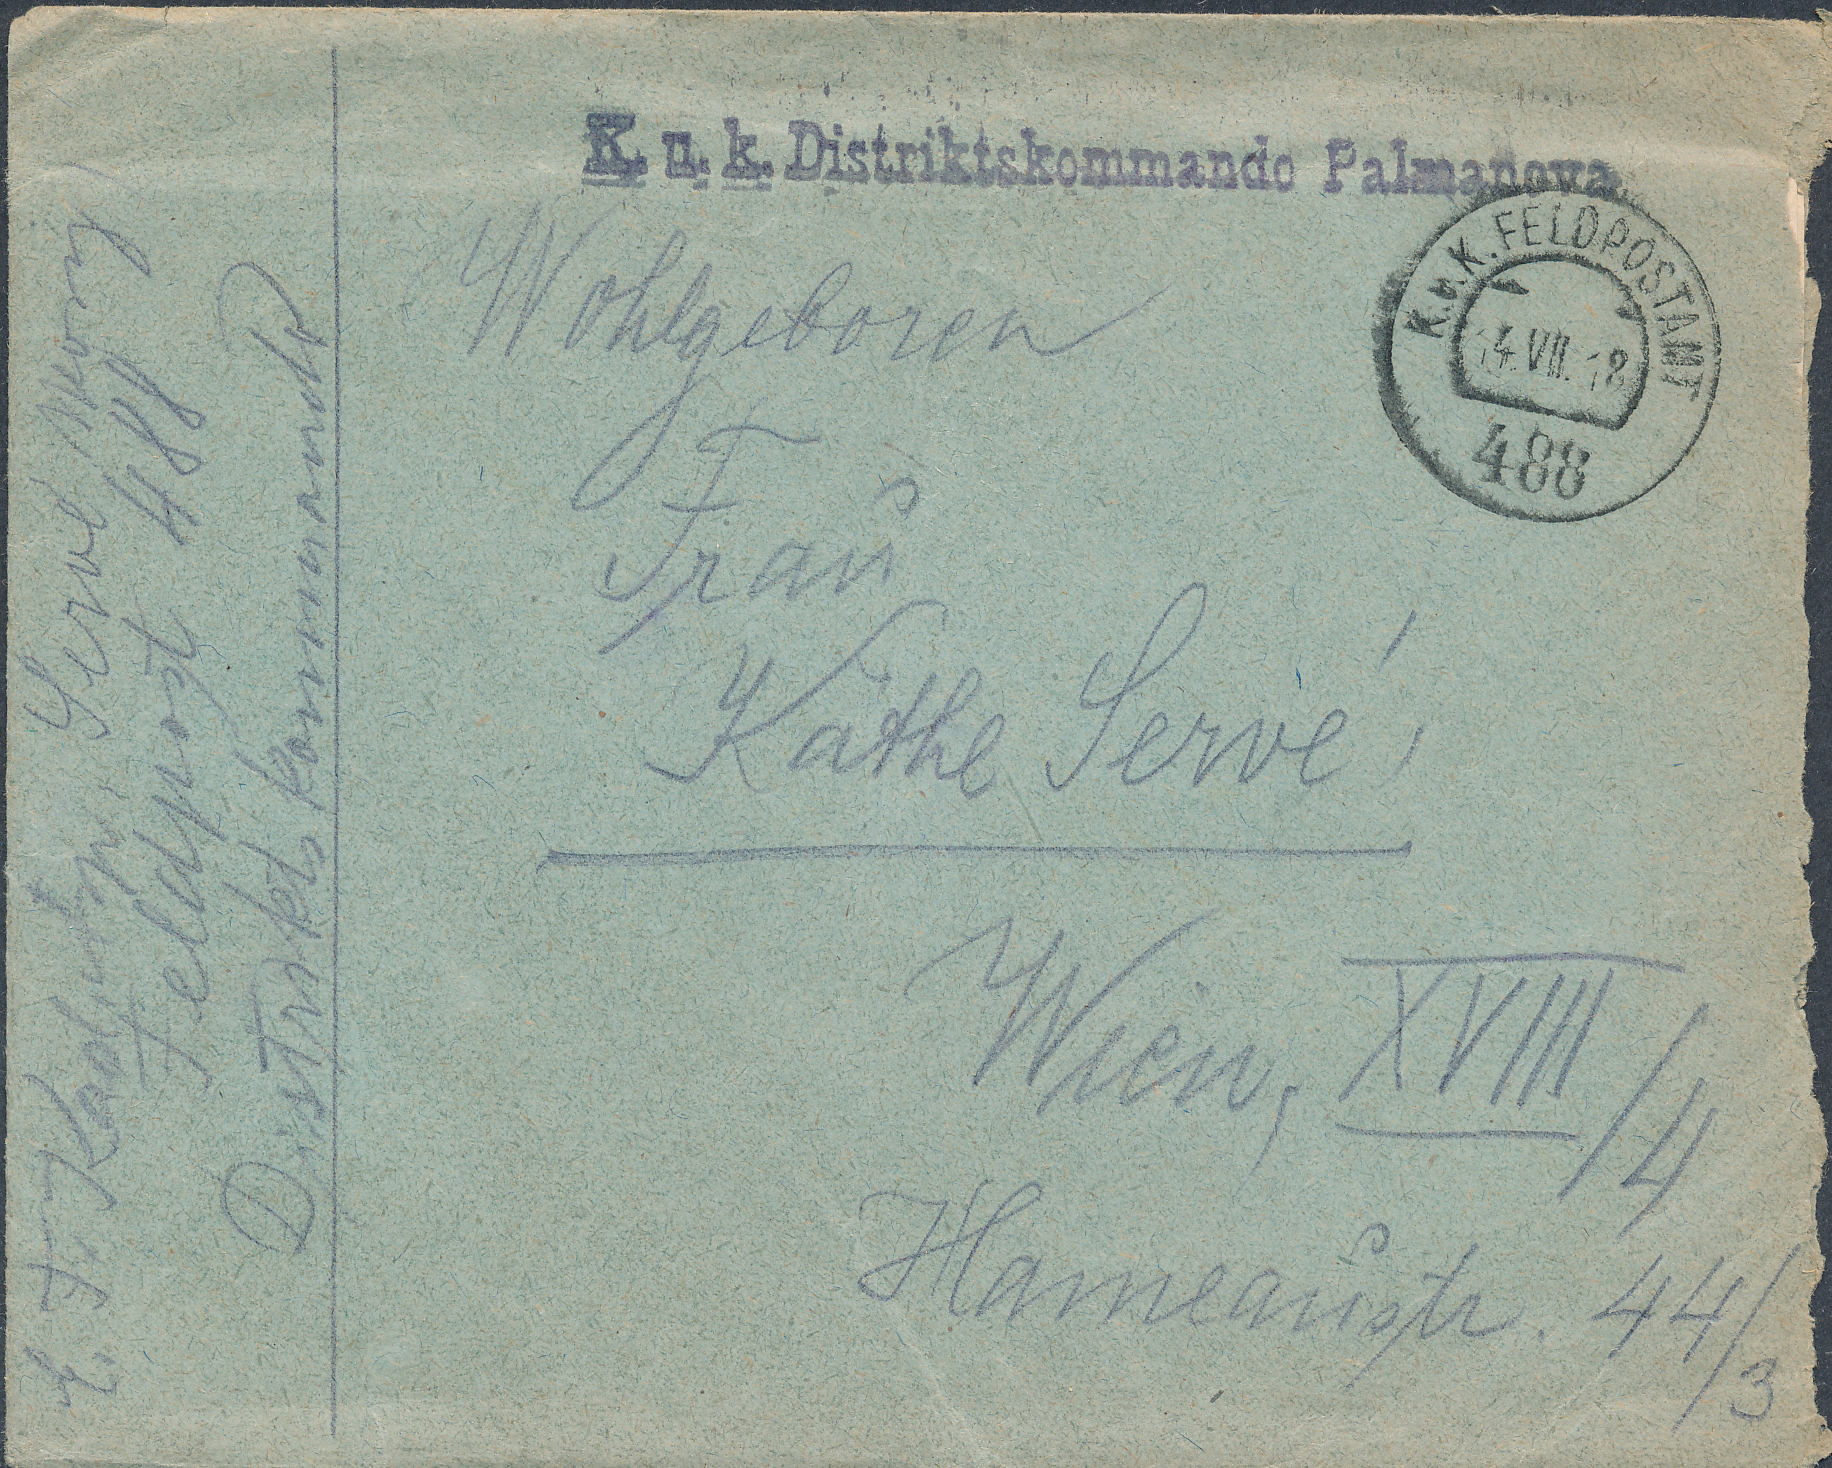 K. u. k. Distriktskommando Palmanova
K.u.K. FELDPOSTAMT
14.VII.18
488
Wohlgeboren
Frau
Käthe Servé,
Wien, XVIII/4
Hameaustr. 44/3
Servé
Feldpost 488
Distriktskommando